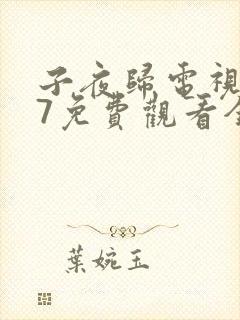 子夜歸電視
7免費觀看全
葉婉玉